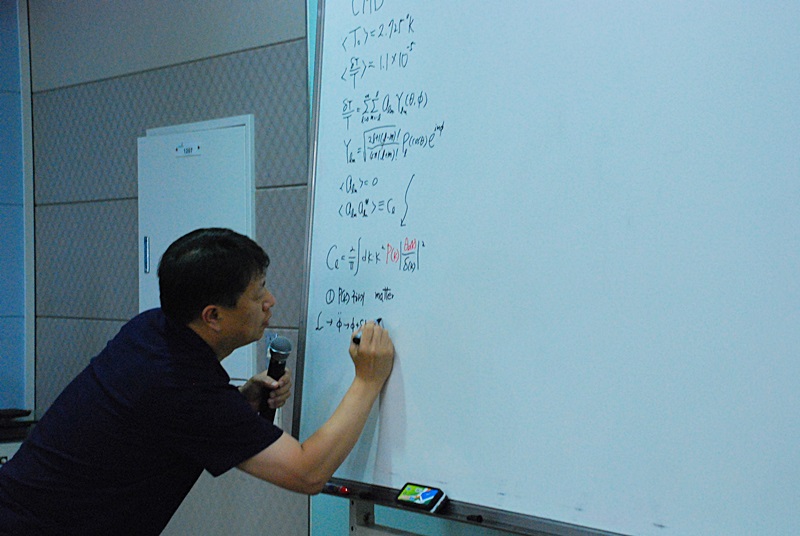 CMB
⟨T₀⟩ = 2.725°K
⟨δT/T⟩ = 1.1 × 10⁻⁵
δT/T = ΣΣ a_lm Y_lm(θ,φ)
Y_lm = √(2l+1(l-m)!/4π(l+m)!) P_l(cosθ) e^imφ
⟨a_lm⟩ = 0
⟨a_lm a_lm*⟩ ≡ C_l
C_l = 2/π ∫dk k² P(k) | /δ(k)|²
① P(k) from matter
L → φ̈ → φ+